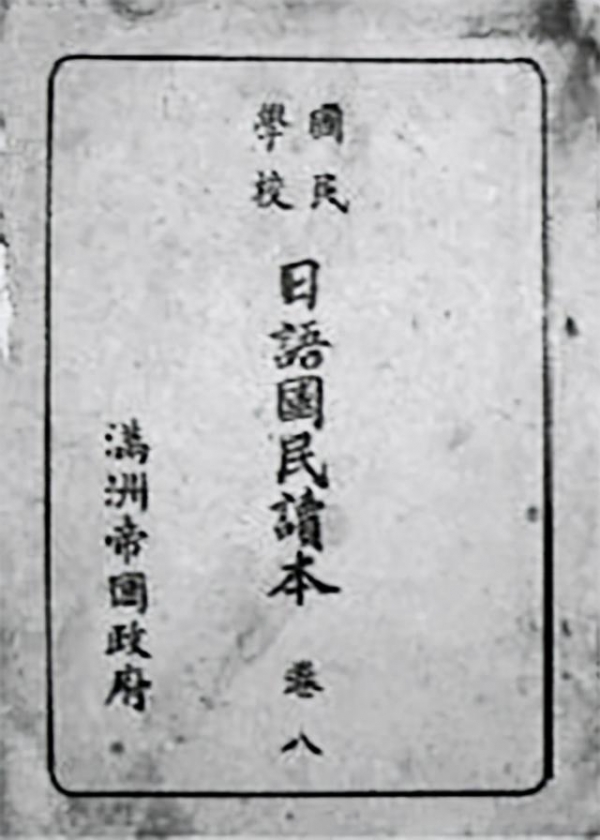 國民
學校
日語國民讀本 卷八
滿洲帝國政府